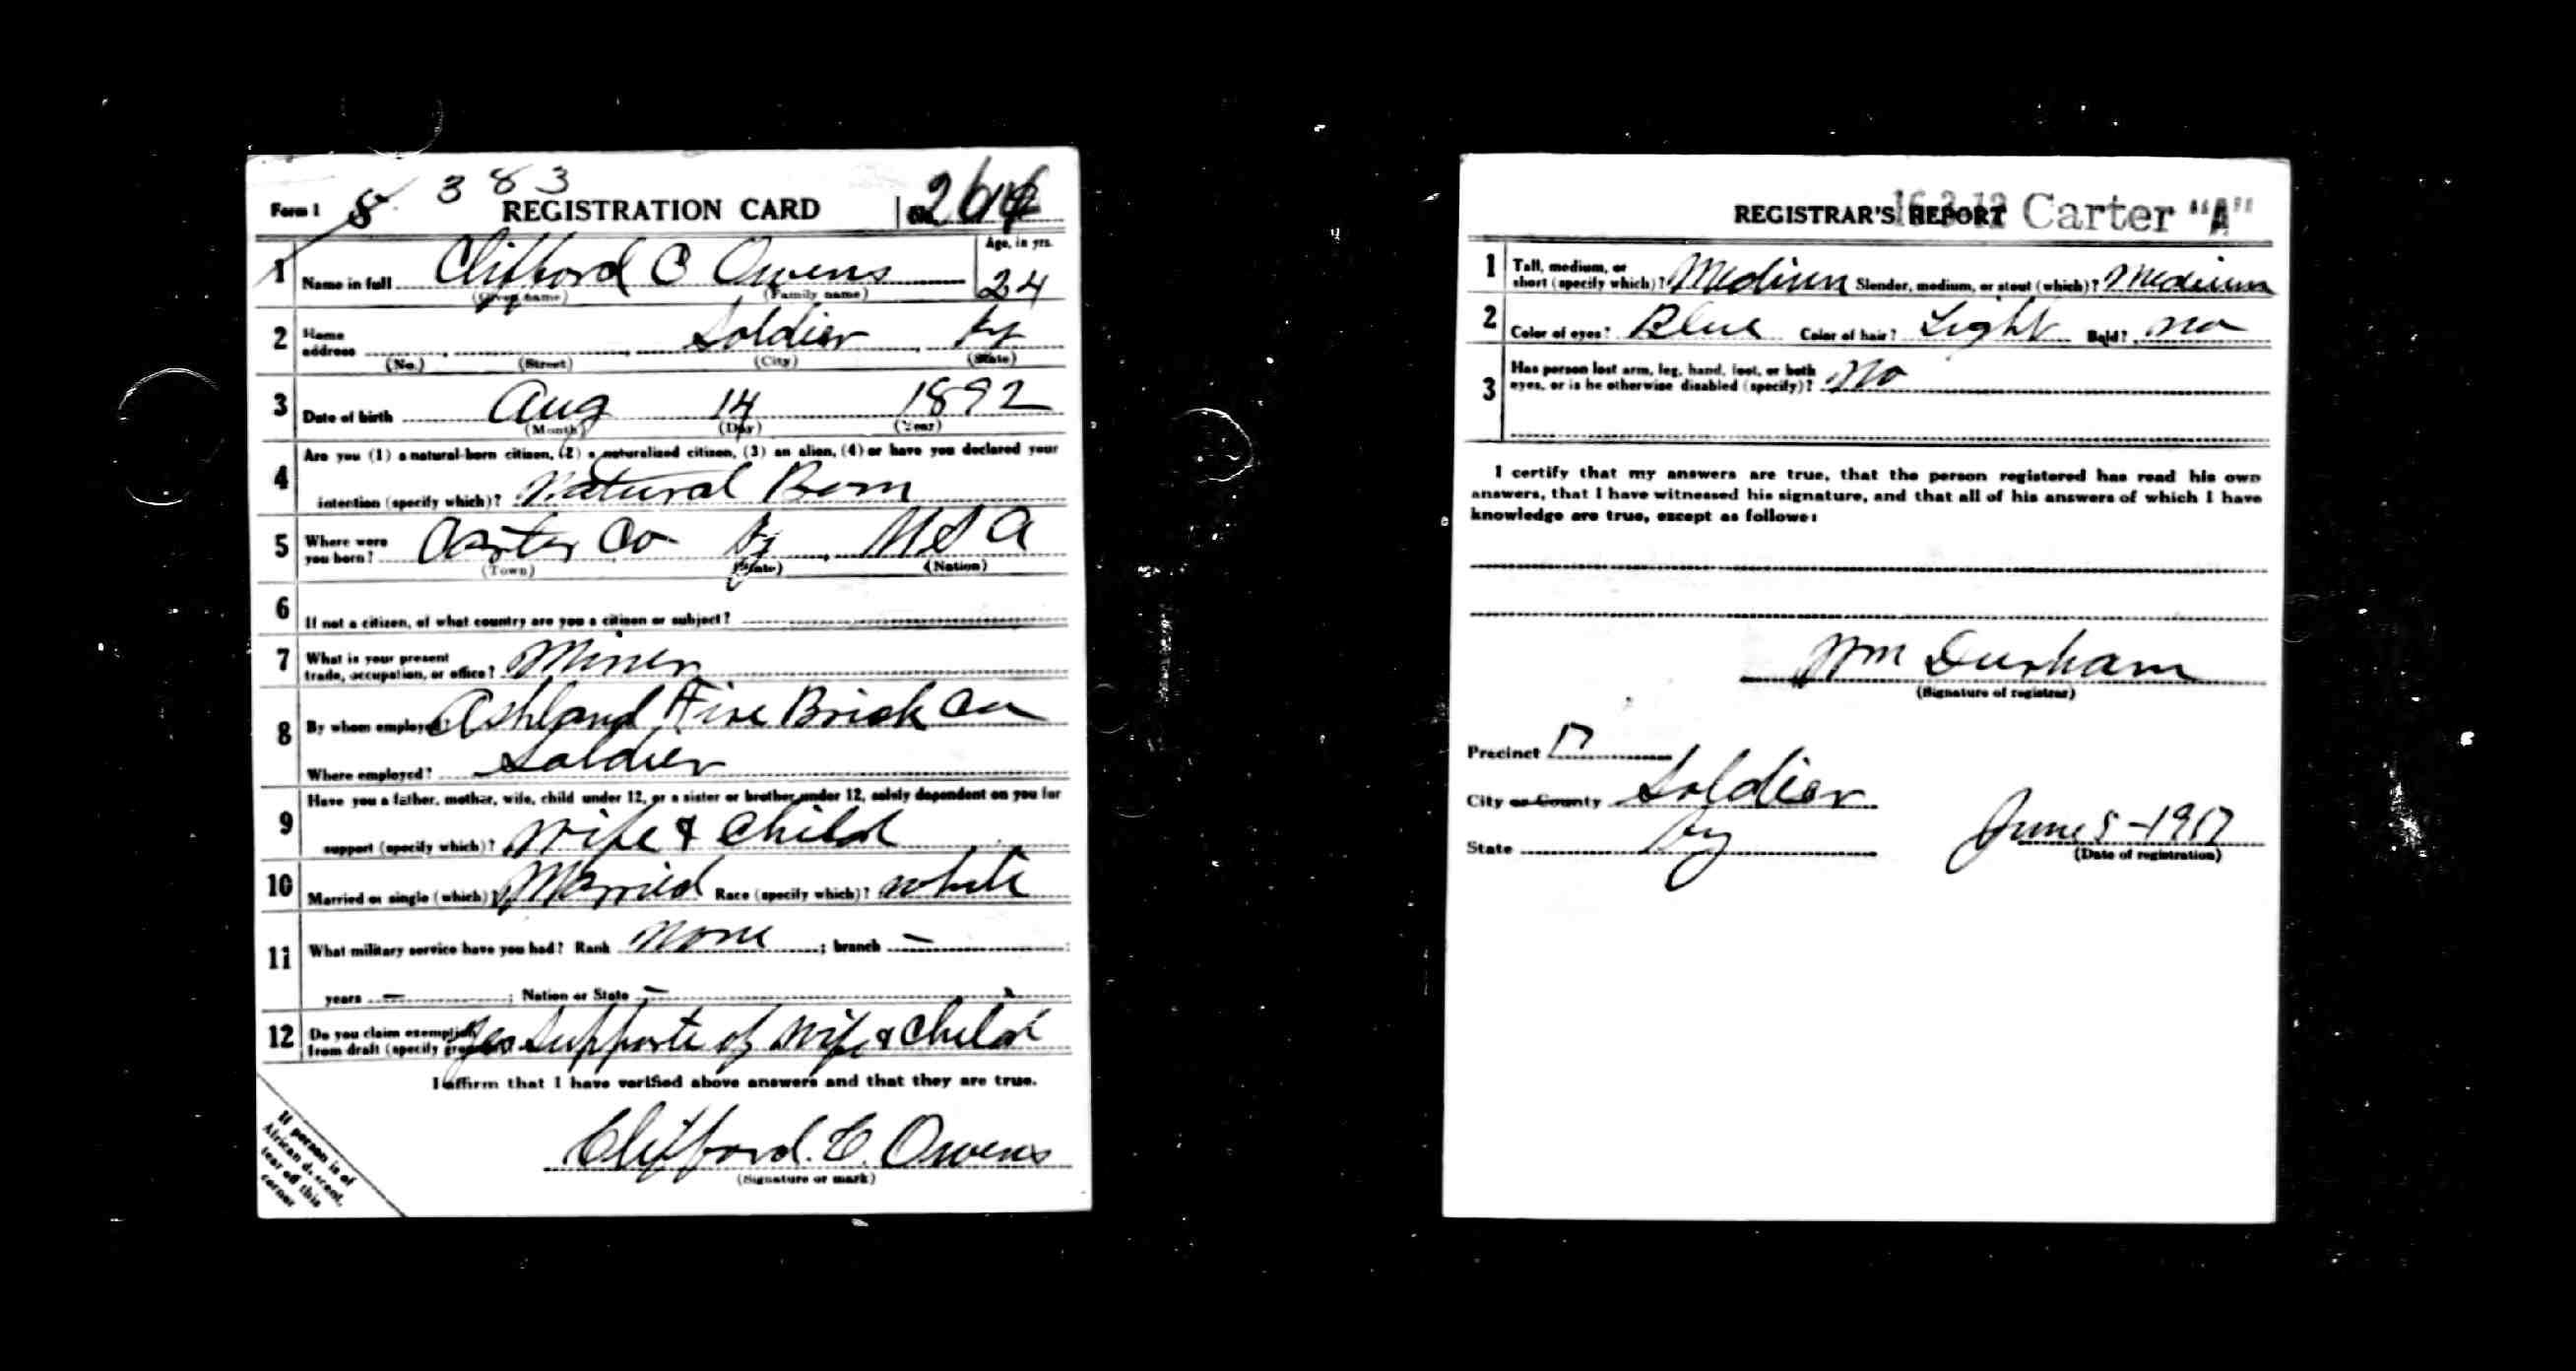 383
Form 1 REGISTRATION CARD No.
1 Name in full Clifford C Owens Age, in yrs. 24
(Given name) (Family name)
2 Home address Soldier Ky
(No.) (Street) (City) (State)
3 Date of birth Aug 14 1892
(Month) (Day) (Year)
4 Are you (1) a natural-born citizen, (2) a naturalized citizen, (3) an alien, (4) or have you declared your
intention (specify which)? Natural Born
5 Where were you born? Carter Co Ky USA
(Town) (State) (Nation)
6 If not a citizen, of what country are you a citizen or subject?
7 What is your present trade, occupation, or office? Miner
8 By whom employed? Ashland Fire Brick Co
Where employed? Soldier
9 Have you a father, mother, wife, child under 12, or a sister or brother under 12, solely dependent on you for
support (specify which)? Wife & Child
10 Married or single (which)? Married Race (specify which)? White
11 What military service have you had? Rank None ; branch —
years — ; Nation or State —
12 Do you claim exemption from draft (specify grounds)? Yes Supporte of Wife & Child
I affirm that I have verified above answers and that they are true.
Clifford. C. Owens
(Signature or mark)
If person is of
African descent,
tear off this
corner
REGISTRAR'S REPORT Carter "A"
1 Tall, medium, or short (specify which)? Medium Slender, medium, or stout (which)? Medium
2 Color of eyes? Blue Color of hair? Light Bald? No
3 Has person lost arm, leg, hand, foot, or both
eyes, or is he otherwise disabled (specify)? No
I certify that my answers are true, that the person registered has read his own
answers, that I have witnessed his signature, and that all of his answers of which I have
knowledge are true, except as follows:
Wm Durham
(Signature of registrar)
Precinct
City or County Soldier
State Ky
June 5-1917
(Date of registration)